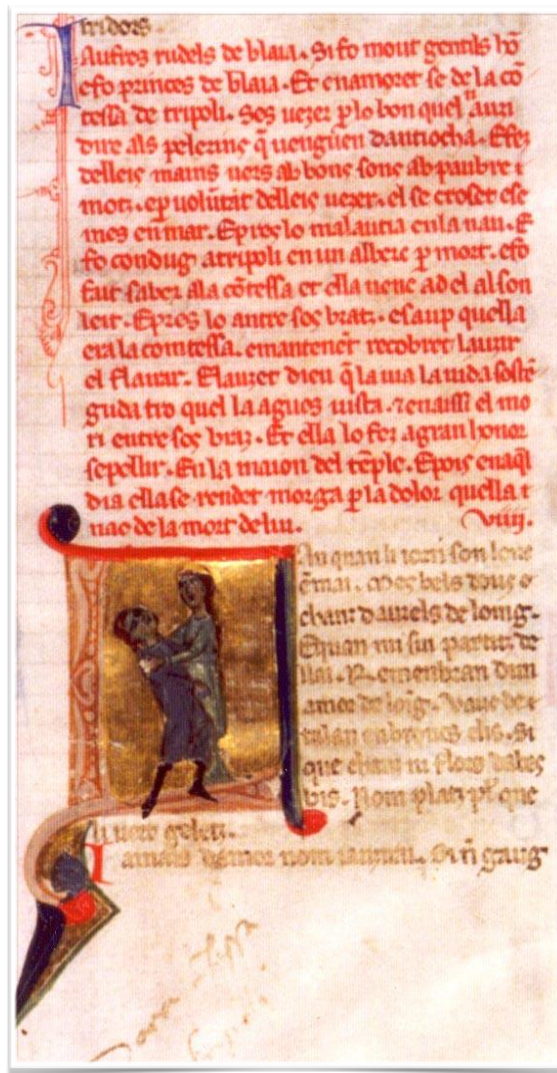 Jaufres rudels de blaia. Si fo mout gentils hõ
efo princes de blaia. Et enamoret se de la cõ
tessa de tripoli. Ses uezer ꝑlo bon quel n auzi
dire als pelerins q̃ uenguen dantiocha. Efez
delleis mains uers ab bons sons ab paubres
motz. eꝑ uolũtat delleis uezer. el se croset ese
mes en mar. Epres lo malautia en la nau. E
fo condug atripoli en un alberc ꝑ mort. efo
fait saber ala cõtessa et ella uenc ad el al son
leit. Epres lo antre sos bratz. esaup quella
era la comtessa. emantenẽt recobret lauzir
el flairar. Elauzet dieu q̃ la uia la uida sostẽ
guda tro quel la agues uista. ⁊ enaissi el mo
ri entre sos braz. Et ella lo fez agran honor
sepellir. En la maion del tẽple. Epois enaq̃l
dia ella se rendet morga ꝑ la dolor quella
nac de la mort de lui. viiij.
an quan li iorn son lonc
ẽ mai. Mes bels douz
chanz dauzels de loing.
Equan mi sui partitz de
lai. R emenbran dun
amor de loing. Vauc de
talan enbroncs clis. Si
que chanz ni flors dalbes
pis. Nom platz pl que
liuers gelatz.
Ia mais damor nom iauzirai. Si ñ gaug